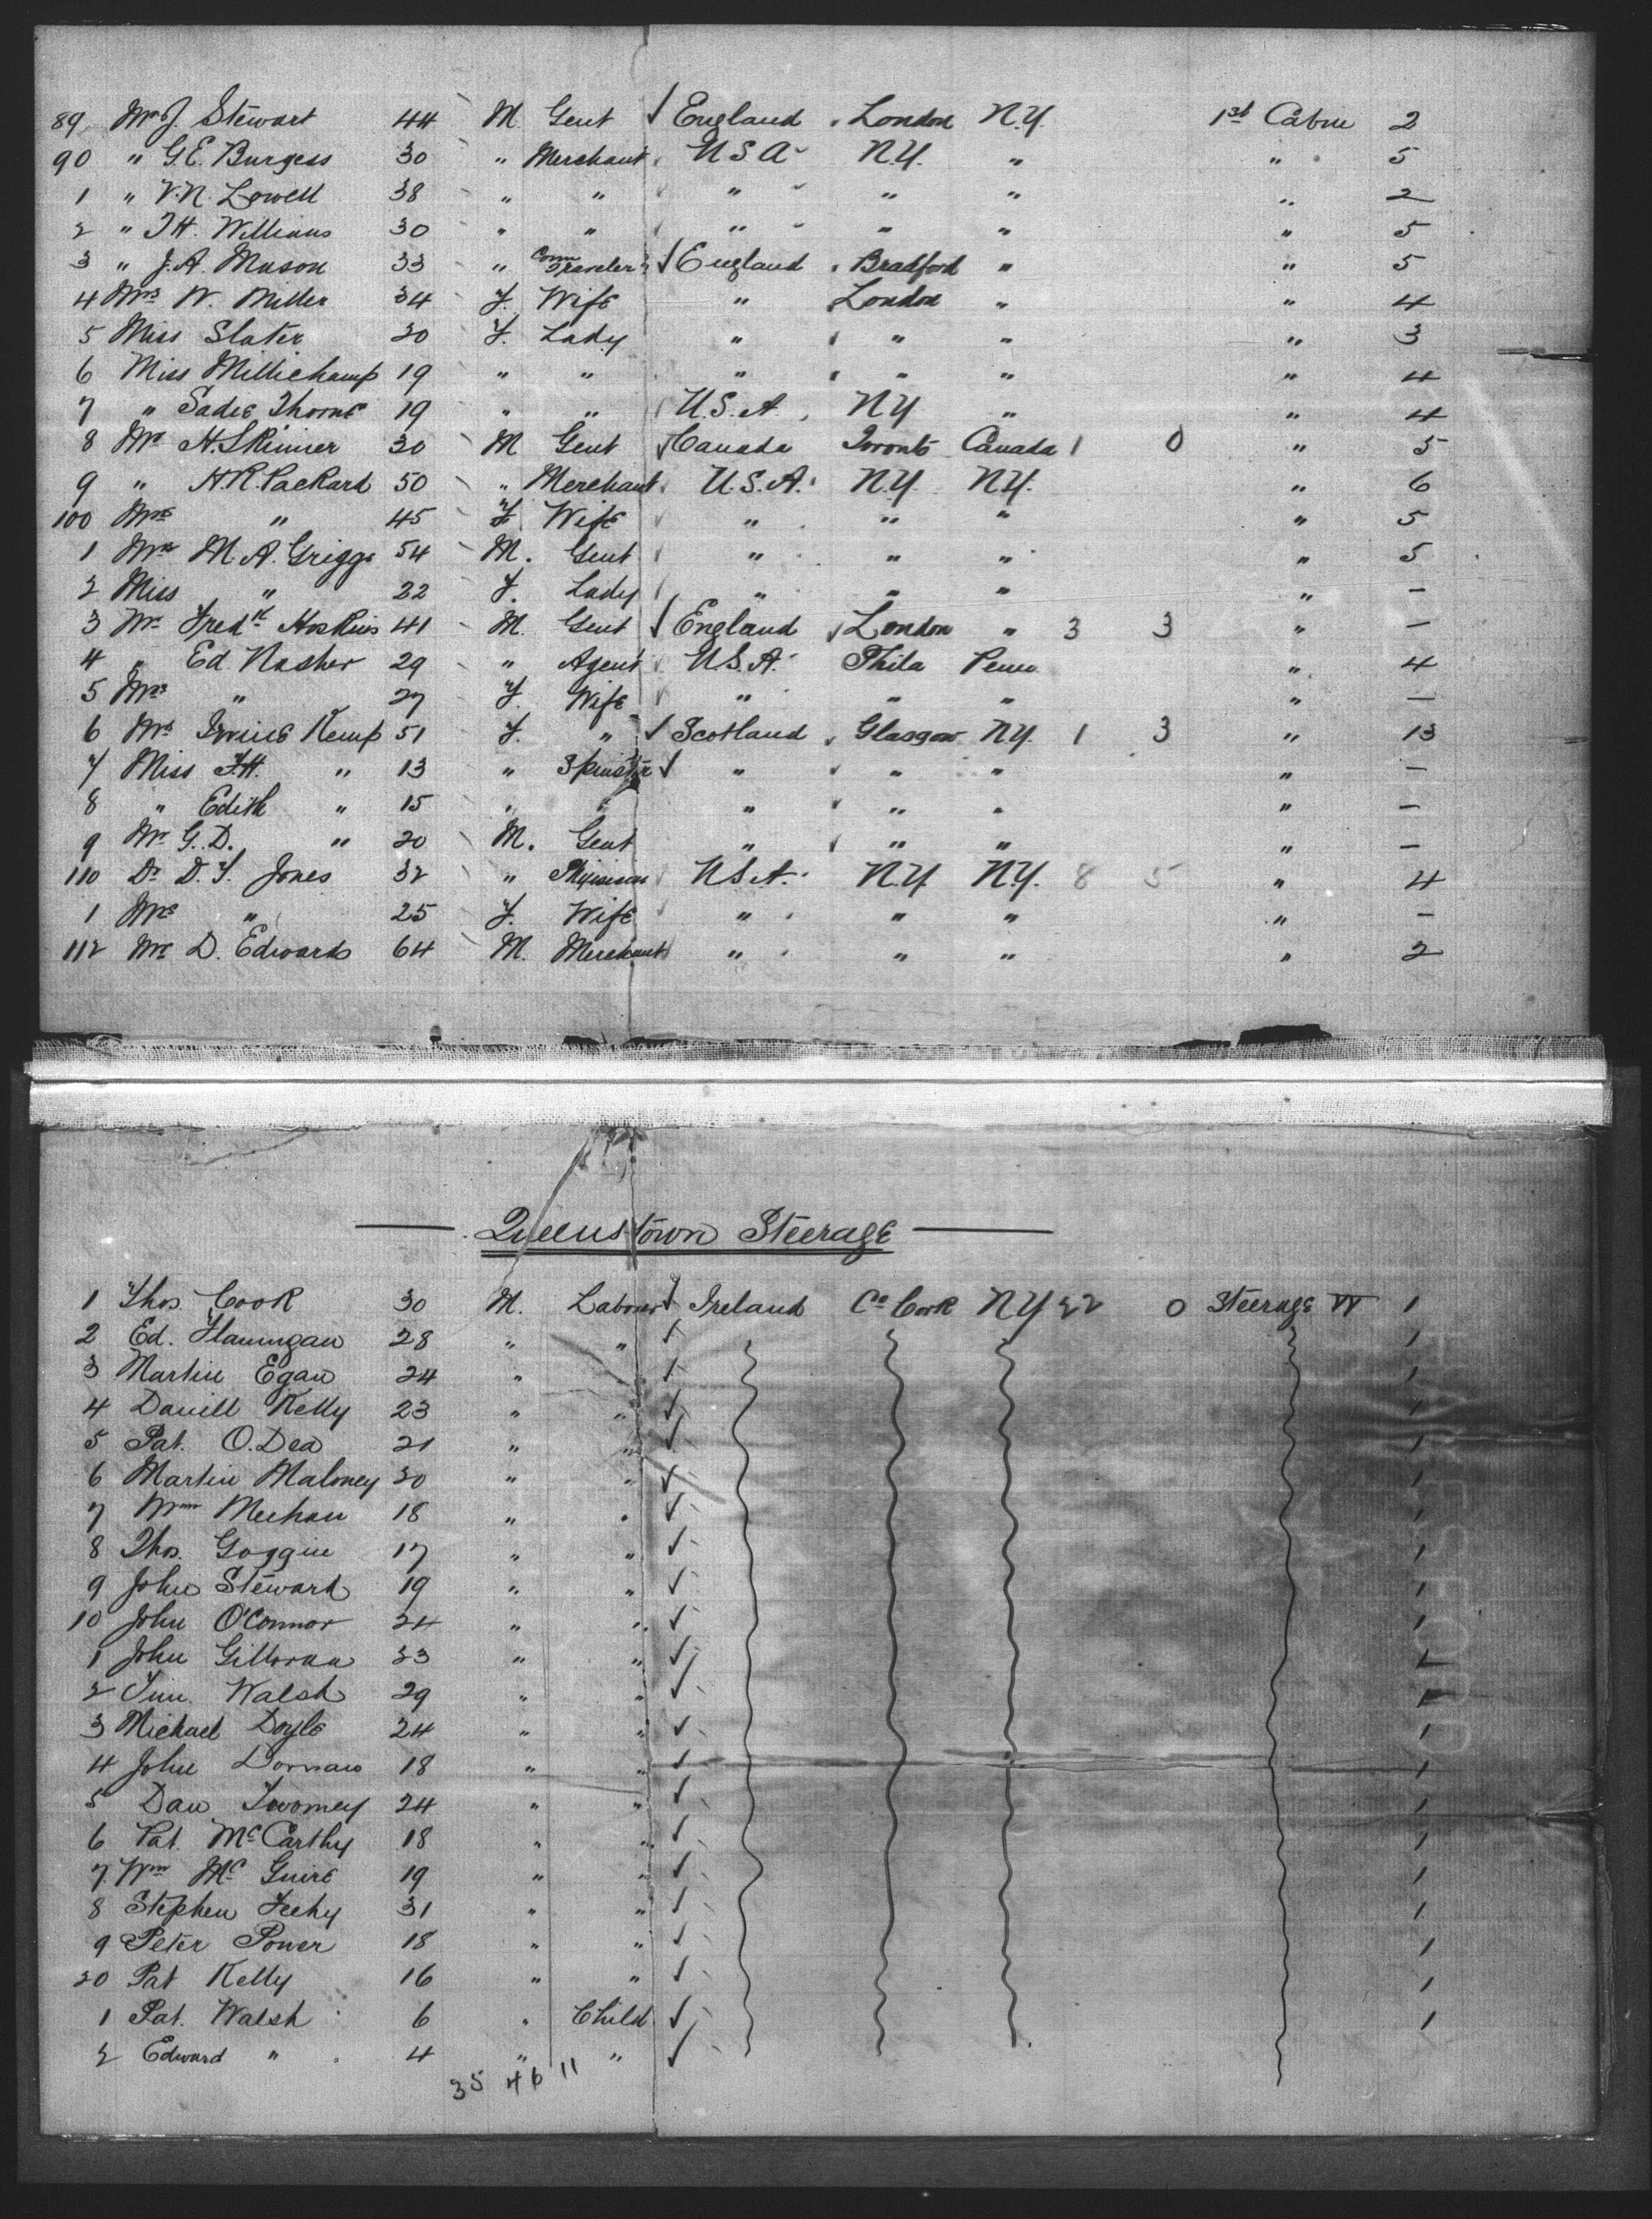 89 Mr J. Stewart 44 M. Gent ✓ England London N.Y. 1st Cabin 2
90 " G.E. Burgess 30 " Merchant U S A N.Y. " " 5
1 " V.N. Lowell 38 " " " " " " 2
2 " J H. Williams 30 " " " " " " 5
3 " J.A. Mason 33 " Comm Traveler ✓ England Bradford " " 5
4 Mrs W. Miller 34 F. Wife " London " " 4
5 Miss Slater 20 F. Lady " " " " 3
6 Miss Millichamp 19 " " " " " " 4
7 " Sadie Thorne 19 " " U.S.A. NY " " 4
8 Mr H. Skinner 30 M Gent ✓ Canada Toronto Canada 1 0 " 5
9 " H.R. Packard 50 " Merchant U.S.A. N.Y. N.Y. " 6
100 Mrs " 45 F Wife " " " " 5
1 Mr M. A. Griggs 54 M. Gent " " " " 5
2 Miss " 22 F. Lady " " " " —
3 Mr Fredk Hoskins 41 M. Gent ✓ England London " 3 3 " —
4 " Ed Nasher 29 " Agent U.S.A. Phila Penn " 4
5 Mrs " 27 F. Wife " " " " —
6 Mrs Irvine Kemp 51 F. " ✓ Scotland Glasgow NY. 1 3 " 13
7 Miss F.H. " 13 " Spinster ✓ " " " " —
8 " Edith " 15 " " " " " " —
9 Mr G.D. " 20 M. Gent " " " " —
110 Dr D.F. Jones 32 " Physician U.S.A. N.Y N.Y. 8 5 " 4
1 Mrs " 25 F. Wife " " " " —
112 Mr D. Edwards 64 M. Merchant " " " " 2
Queenstown Steerage
1 Thos. Cook 30 M. Labourer ✓ Ireland Co Cork N Y 22 0 Steerage 1
2 Ed. Flannigan 28 " " ✓ 1
3 Martin Egan 24 " ✓ 1
4 Daniell Kelly 23 " " ✓ 1
5 Pat. O.Dea 21 " " ✓ 1
6 Martin Maloney 20 " " ✓ 1
7 Wm Meehan 18 " " ✓ 1
8 Thos. Goggin 17 " " ✓ 1
9 John Steward 19 " " ✓ 1
10 John O'Connor 24 " " ✓ 1
1 John Gilloran 23 " " ✓ 1
2 Tim. Walsh 29 " " ✓ 1
3 Michael Doyle 24 " " ✓ 1
4 John Dornan 18 " " ✓ 1
5 Dan Twomey 24 " " ✓ 1
6 Pat. McCarthy 18 " " ✓ 1
7 Wm McGuire 19 " " ✓ 1
8 Stephen Feehy 31 " " ✓ 1
9 Peter Power 18 " " ✓ 1
20 Pat Kelly 16 " " ✓ 1
1 Pat. Walsh 6 " Child ✓ 1
2 Edward " 4 " " ✓
35 46 11